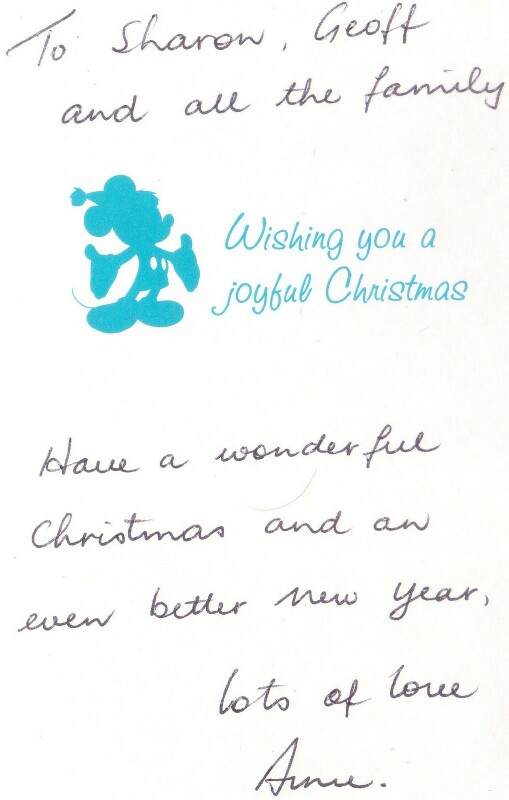 To Sharon, Geoff
and all the family
Wishing you a
joyful Christmas
Have a wonderful
Christmas and an
even better new year,
lots of love
Anne.